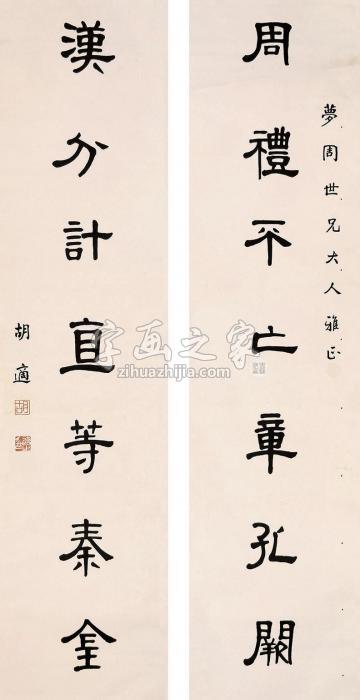 夢周世兄大人雅正
周禮不亡章孔闕
漢分計直等秦金
胡適
字画之家
zihuazhijia.com